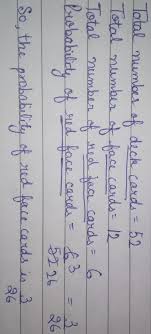 Total number of deck cards = 52
Total number of face cards = 12
Total number of red face cards = 6
Probability of red face cards = 6 3 = 3
52 26 26
So, the probability of red face cards is 3
26